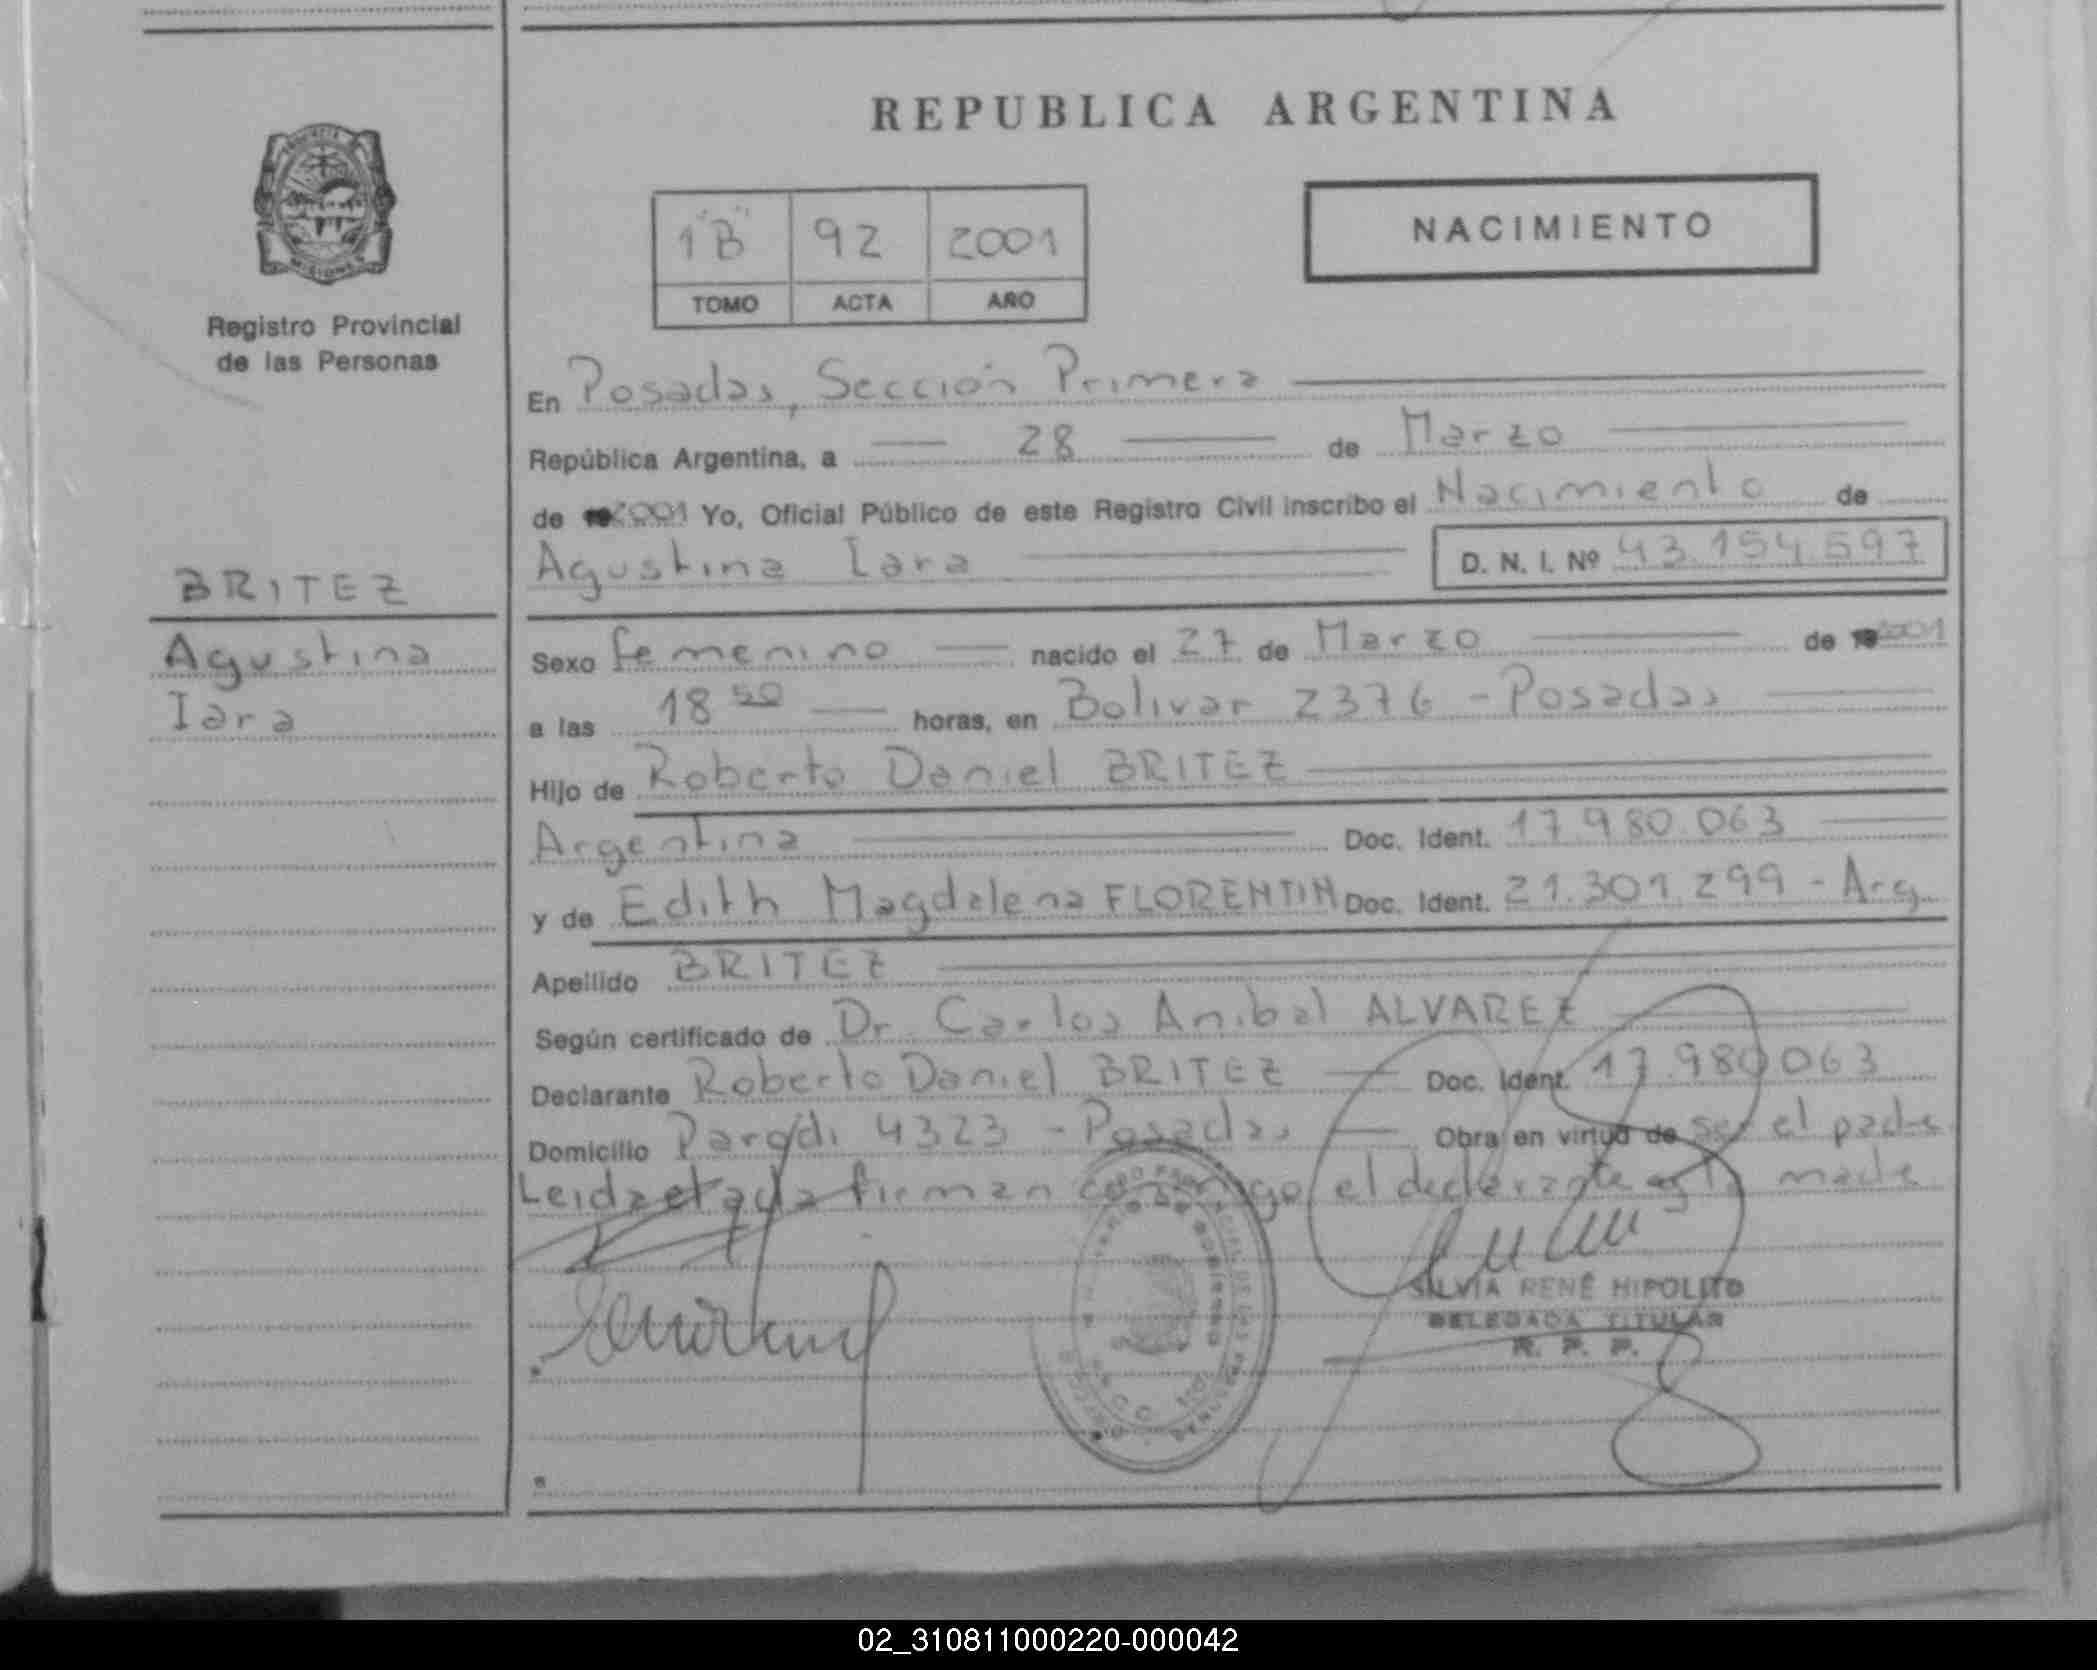 REPUBLICA ARGENTINA
MISIONES
Registro Provincial
de las Personas
1 "B" 92 2001
TOMO ACTA AÑO
NACIMIENTO
En Posadas, Sección Primera
República Argentina, a 28 de Marzo
de 2001 Yo, Oficial Público de este Registro Civil inscribo el Nacimiento de
Agustina Iara D. N. I. Nº 43.154.597
BRITEZ
Agustina
Iara
Sexo femenino nacido el 27 de Marzo de 2001
a las 18 50 horas, en Bolivar 2376 - Posadas
Hijo de Roberto Daniel BRITEZ
Argentina Doc. Ident. 17.980.063
y de Edith Magdalena FLORENTIN Doc. Ident. 21.301.299 - Arg.
Apellido BRITEZ
Según certificado de Dr. Carlos Anibal ALVAREZ
Declarante Roberto Daniel BRITEZ Doc. Ident. 17.980063
Domicilio Parodi 4323 - Posadas Obra en virtud de ser el padre
Leida el acta firman conmigo el declarante y la madre
SILVIA RENÉ HIPOLITO
DELEGADA TITULAR
R. P. P.
02_310811000220-000042